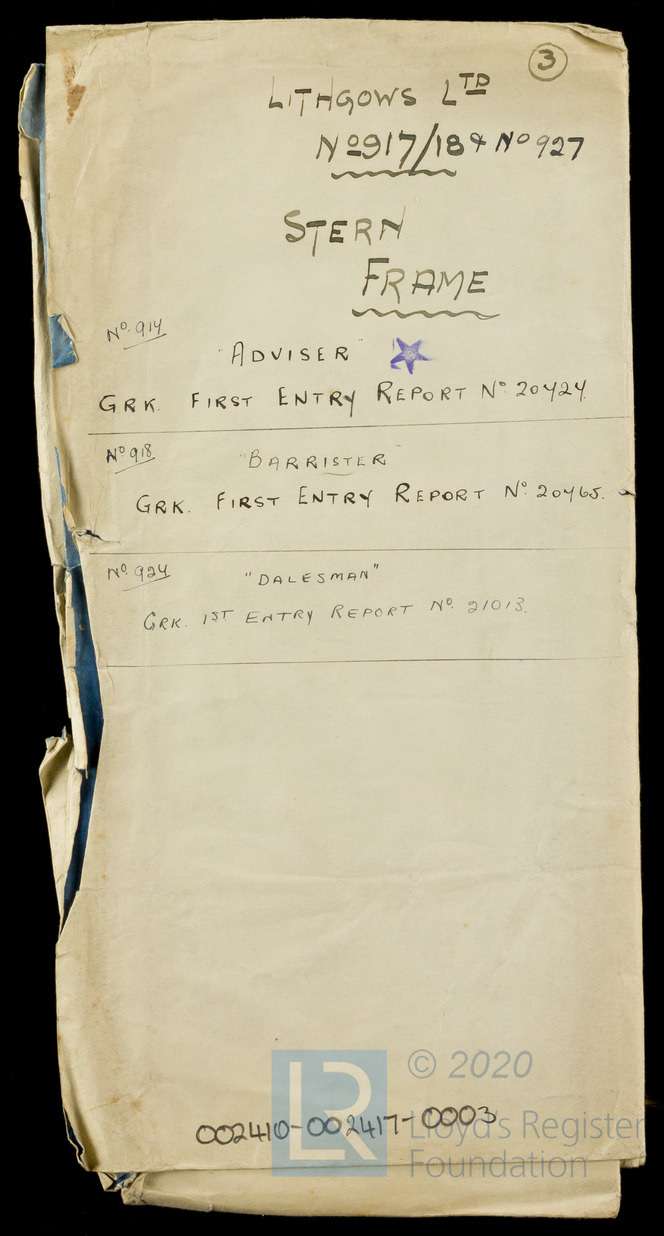 3
LITHGOWS LTD
No 917/18 & No 927
STERN
FRAME
No. 917
"ADVISER"
GRK. FIRST ENTRY REPORT No. 20424.
No 918
"BARRISTER"
GRK. FIRST ENTRY REPORT No. 20465.
No. 927
"DALESMAN"
GRK. 1ST ENTRY REPORT No. 21013.
LR
© 2020
Lloyd's Register
Foundation
002410-002417-0003